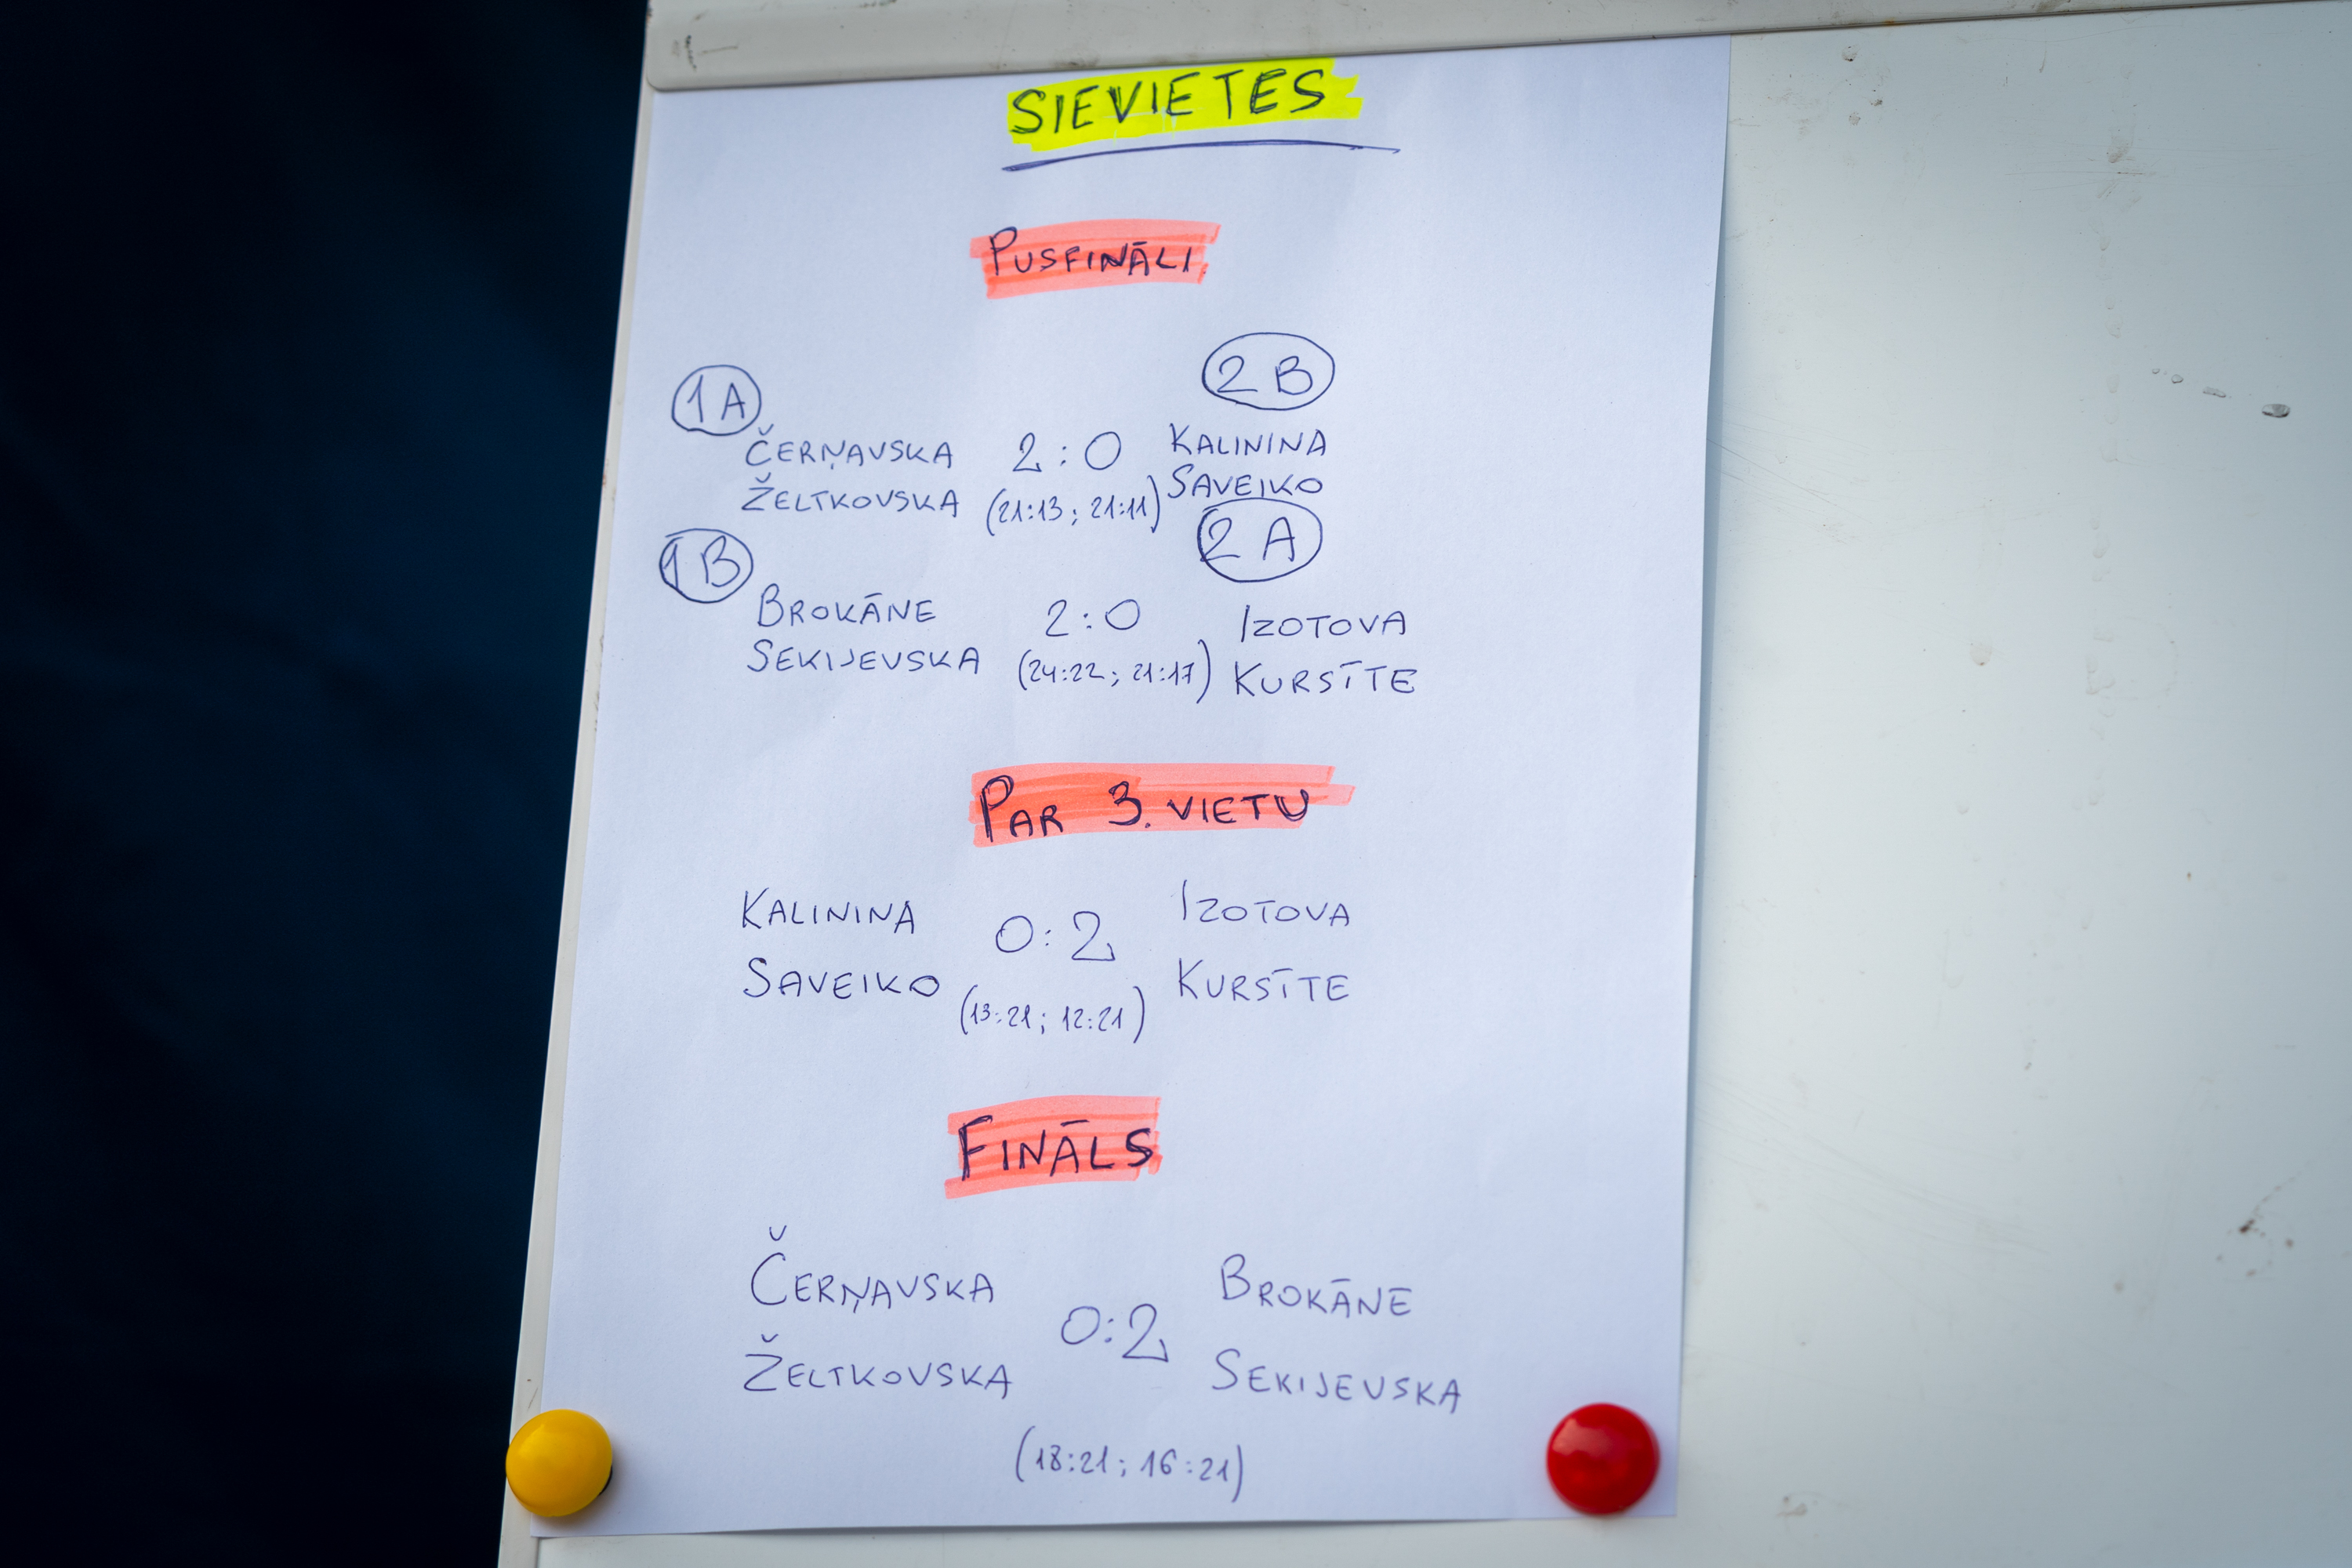 SIEVIETES
PUSFINĀLI
1A 2B
ČERŅAVSKA 2:0 KALININA
ŽELTKOVSKA (21:13; 21:11) SAVEIKO
1B 2A
BROKĀNE 2:0 IZOTOVA
SEKIJEVSKA (24:22; 21:17) KURSĪTE
PAR 3. VIETU
KALININA 0:2 IZOTOVA
SAVEIKO (13:21; 12:21) KURSĪTE
FINĀLS
ČERŅAVSKA 0:2 BROKĀNE
ŽELTKOVSKA SEKIJEVSKA
(18:21; 16:21)